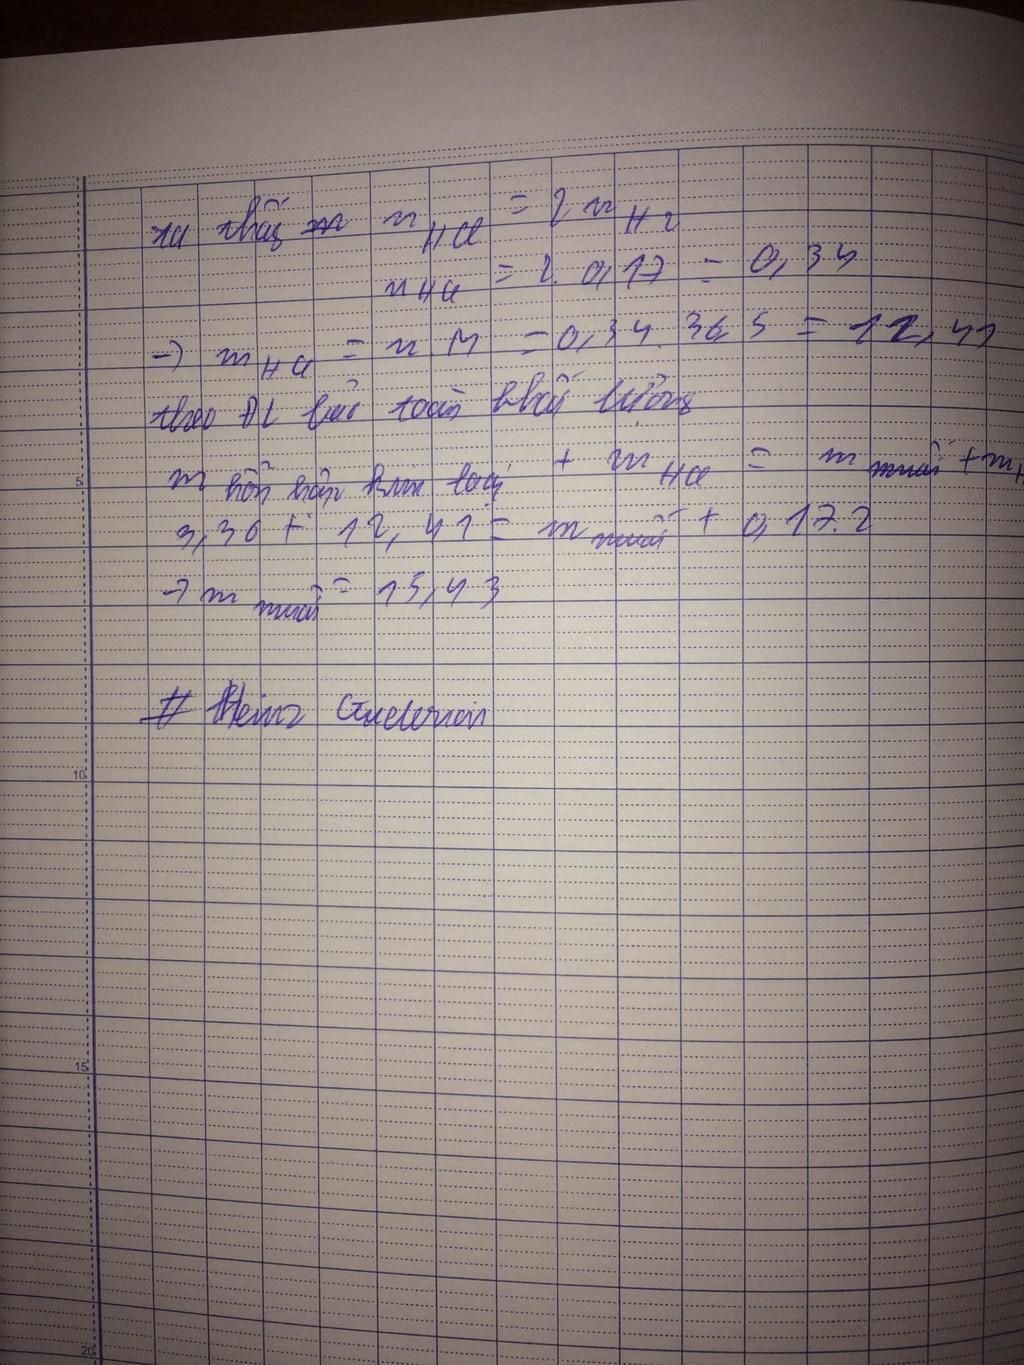 ta thấy n HCl = 2 n H2
n HCl = 2. 0,17 = 0,34
→ m HCl = n.M = 0,34. 36,5 = 12,41
theo ĐL bảo toàn khối lượng
m hỗn hợp kim loại + m HCl = m muối + m H
3,36 + 12,41 = m muối + 0,17.2
→ m muối = 15,43
# Heinz Guderian
5
10
15
20